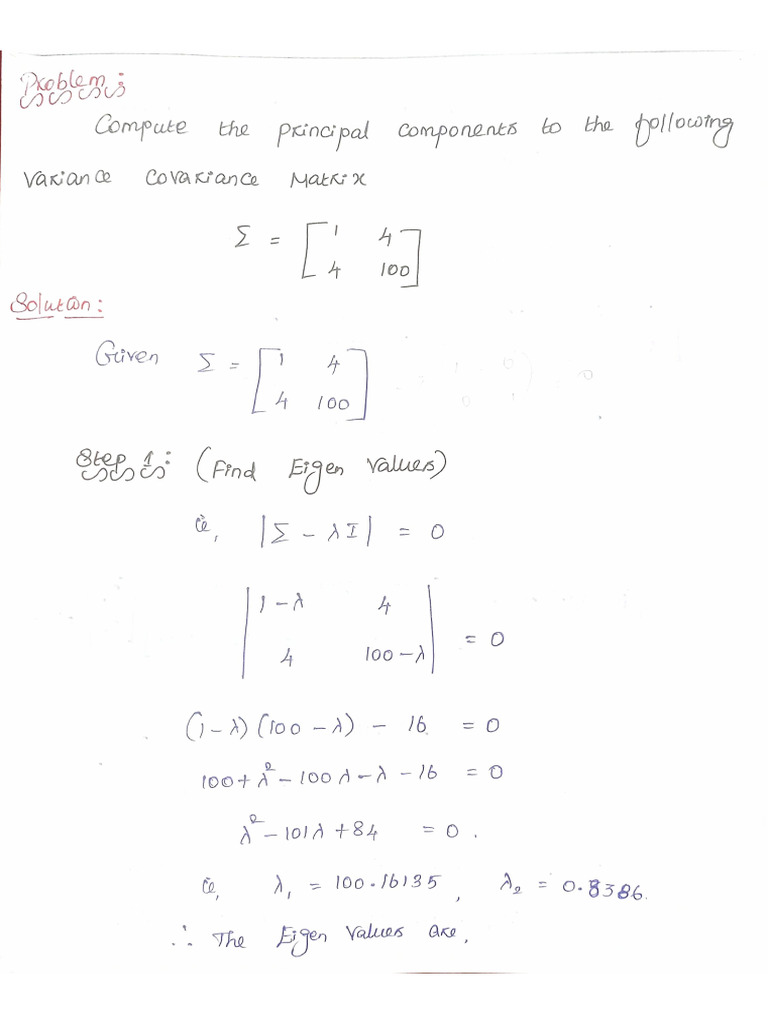 Problem :
Compute the principal components to the following
Variance Covariance Matrix
Σ = [ 1 4
4 100 ]
Solution:
Given Σ = [ 1 4
4 100 ]
Step 1: (Find Eigen Values)
ie, |Σ - λI| = 0
| 1-λ 4
4 100-λ | = 0
(1-λ) (100-λ) - 16 = 0
100+λ²-100λ-λ-16 = 0
λ²-101λ+84 = 0.
ie, λ₁ = 100.16135, λ₂ = 0.8386.
∴ The Eigen Values are,